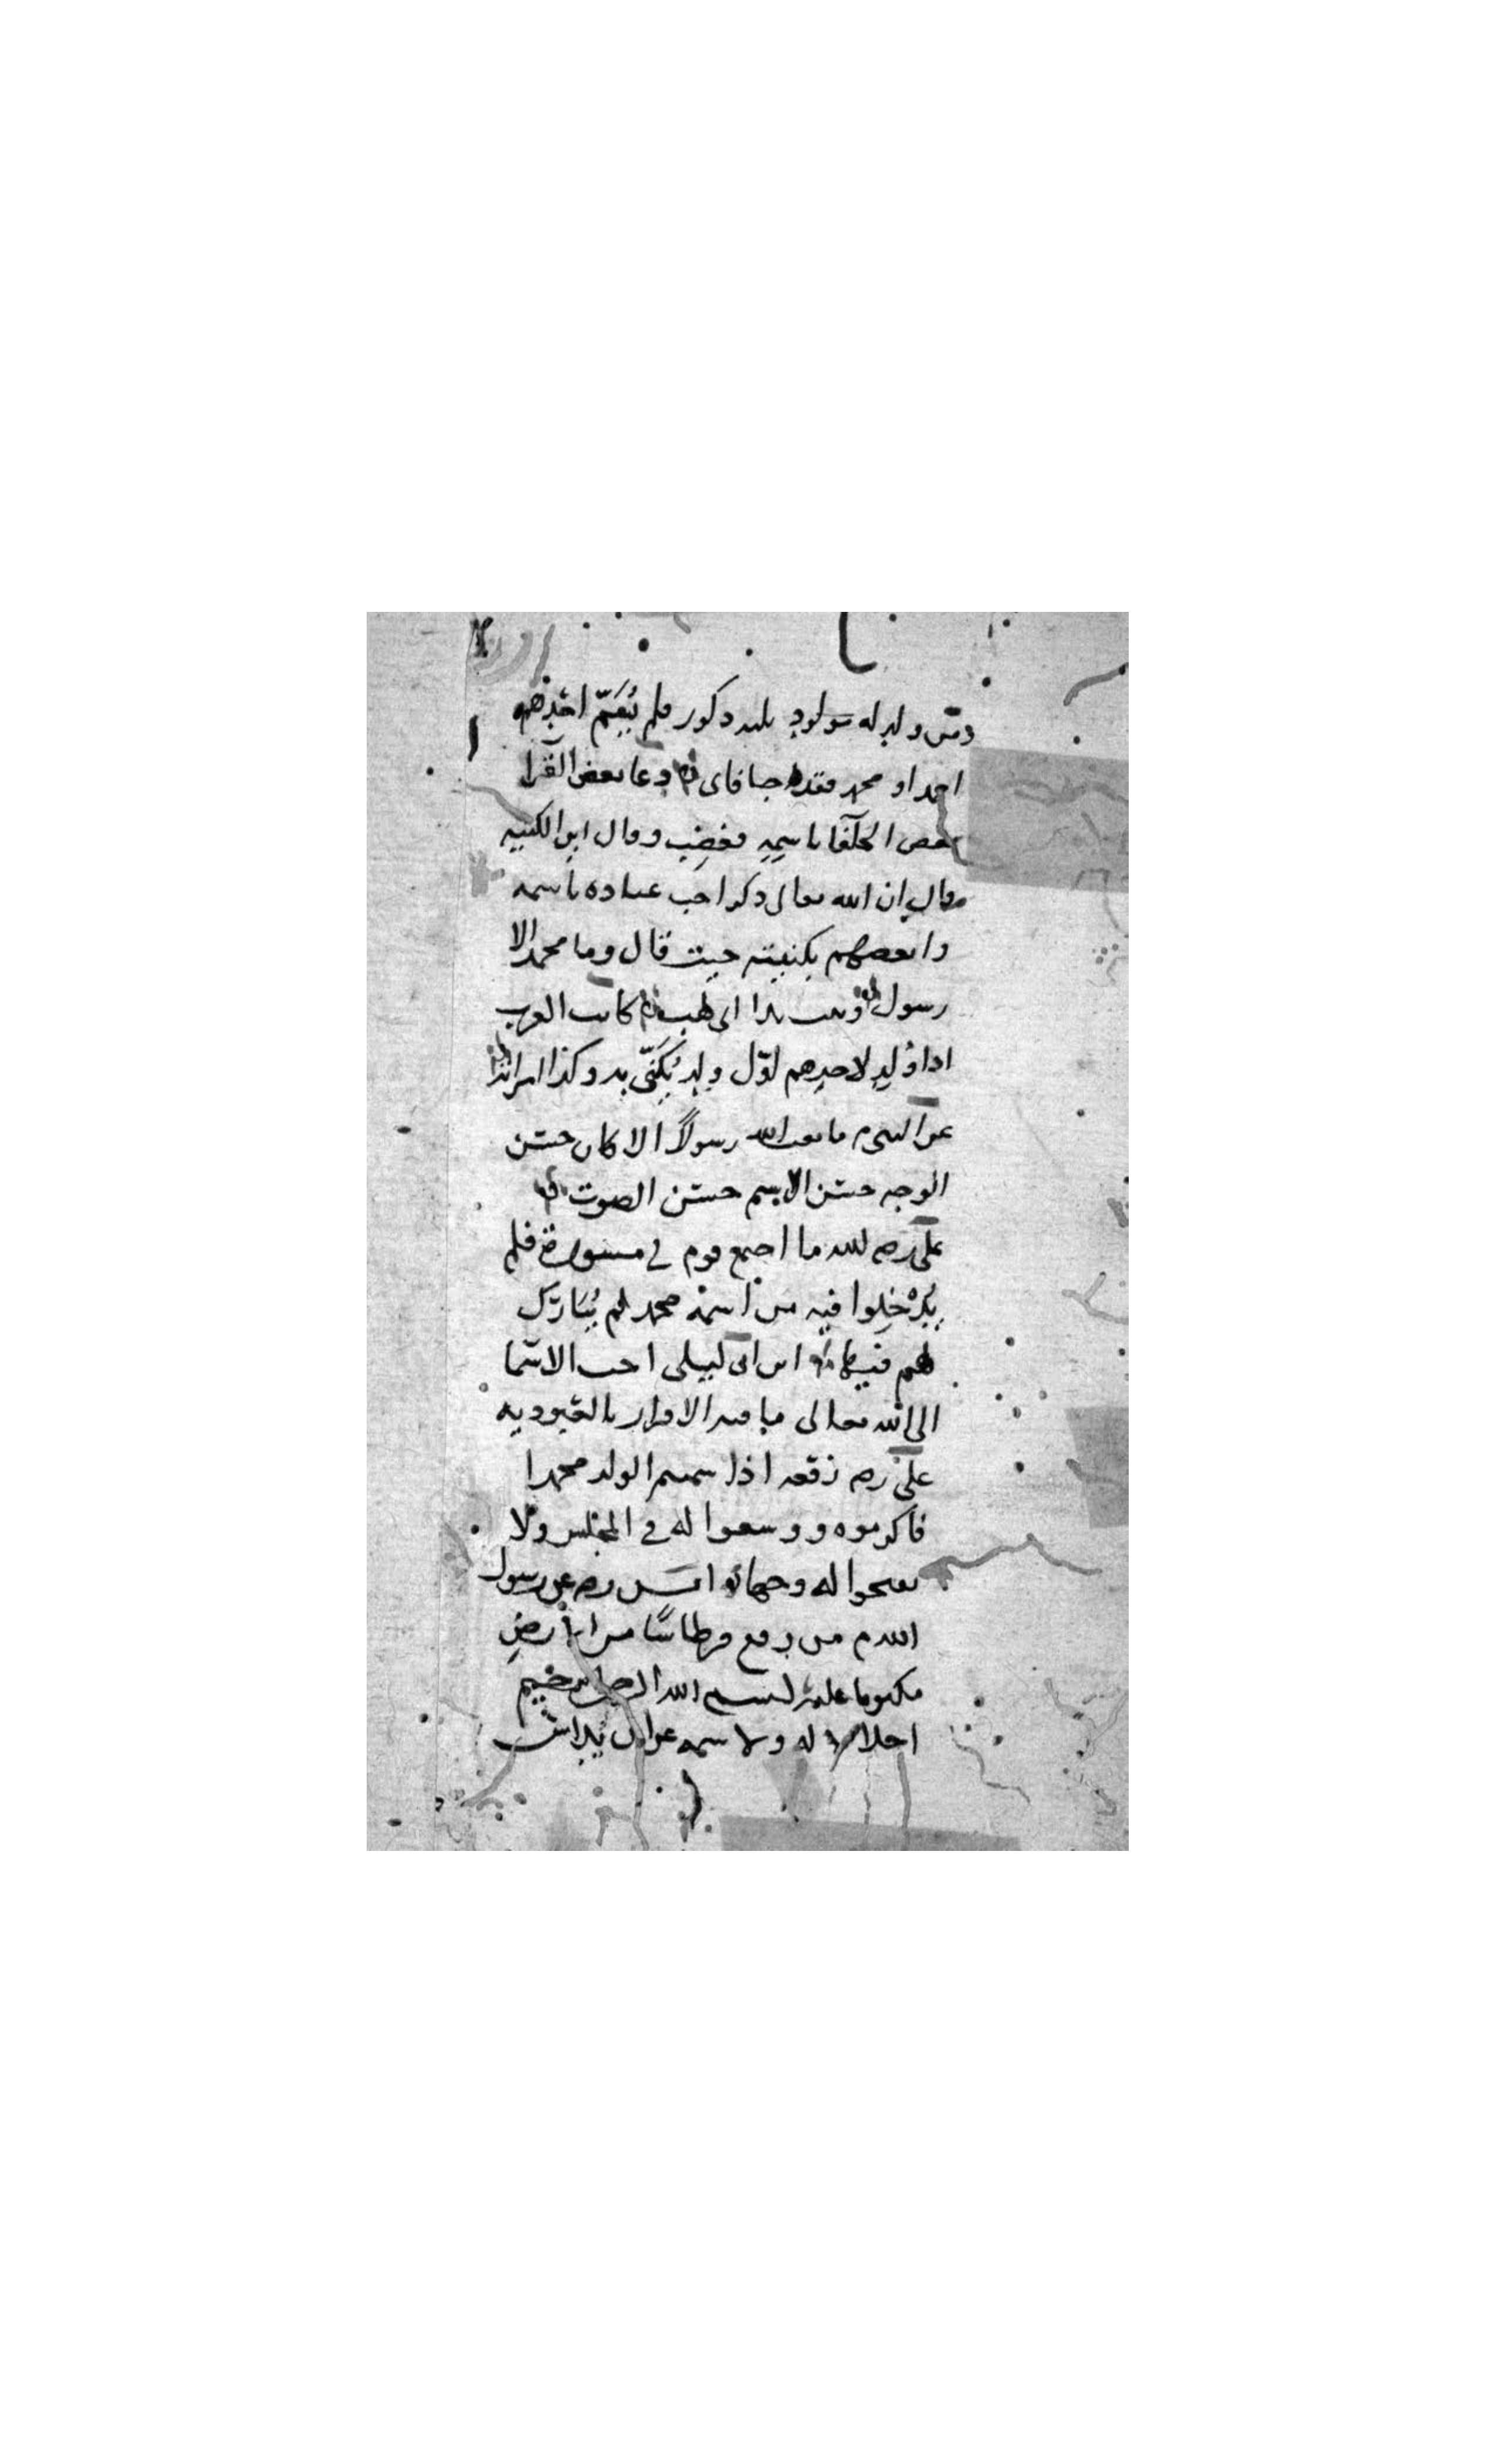 ومن ولد له مولود ثلثه ذكور فلم يسم احدهم
احمد او محمد فقد جفاني دعا بعض القرا
بعض الخلفا باسمه فغضب وقال اين الكنيه
فقال ان الله تعالى ذكر احب عباده باسمه
وابغضهم بكنيته حيث قال وما محمد الا
رسول وتبت يدا ابى لهب كانت العرب
اذا وُلد لاحدهم اول ولد يُكَنّى به وكذا امراته
عن النبى م ما بعث الله رسولاً الا كان حسن
الوجه حسن الاسم حسن الصوت
على رضه لله ما اجتمع قوم فى مشورة فلم
يُدْخِلوا فيه من اسمه محمد لم يُبَارَك
لهم فيها ابن ابى ليلى احب الاسما
الى الله تعالى ما فيه الاقرار بالعبوديه
على رضه رفعه اذا سميتم الولد محمدا
فاكرموه ووسعوا له فى المجلس ولا
تقبحوا له وجها انس رضه عن رسول
الله م من رفع قرطاسًا من الارض
مكتوبا عليه بسم الله الرحمن الرحيم
اجلالا له ولاسمه عن ان يداس